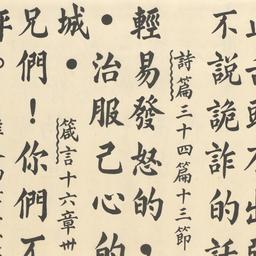 止舌頭不出
不說詭詐的話
詩篇三十四篇十三節
輕易發怒的,
●治服己心的
城● 箴言十六章卅
兄們!你們不
評。